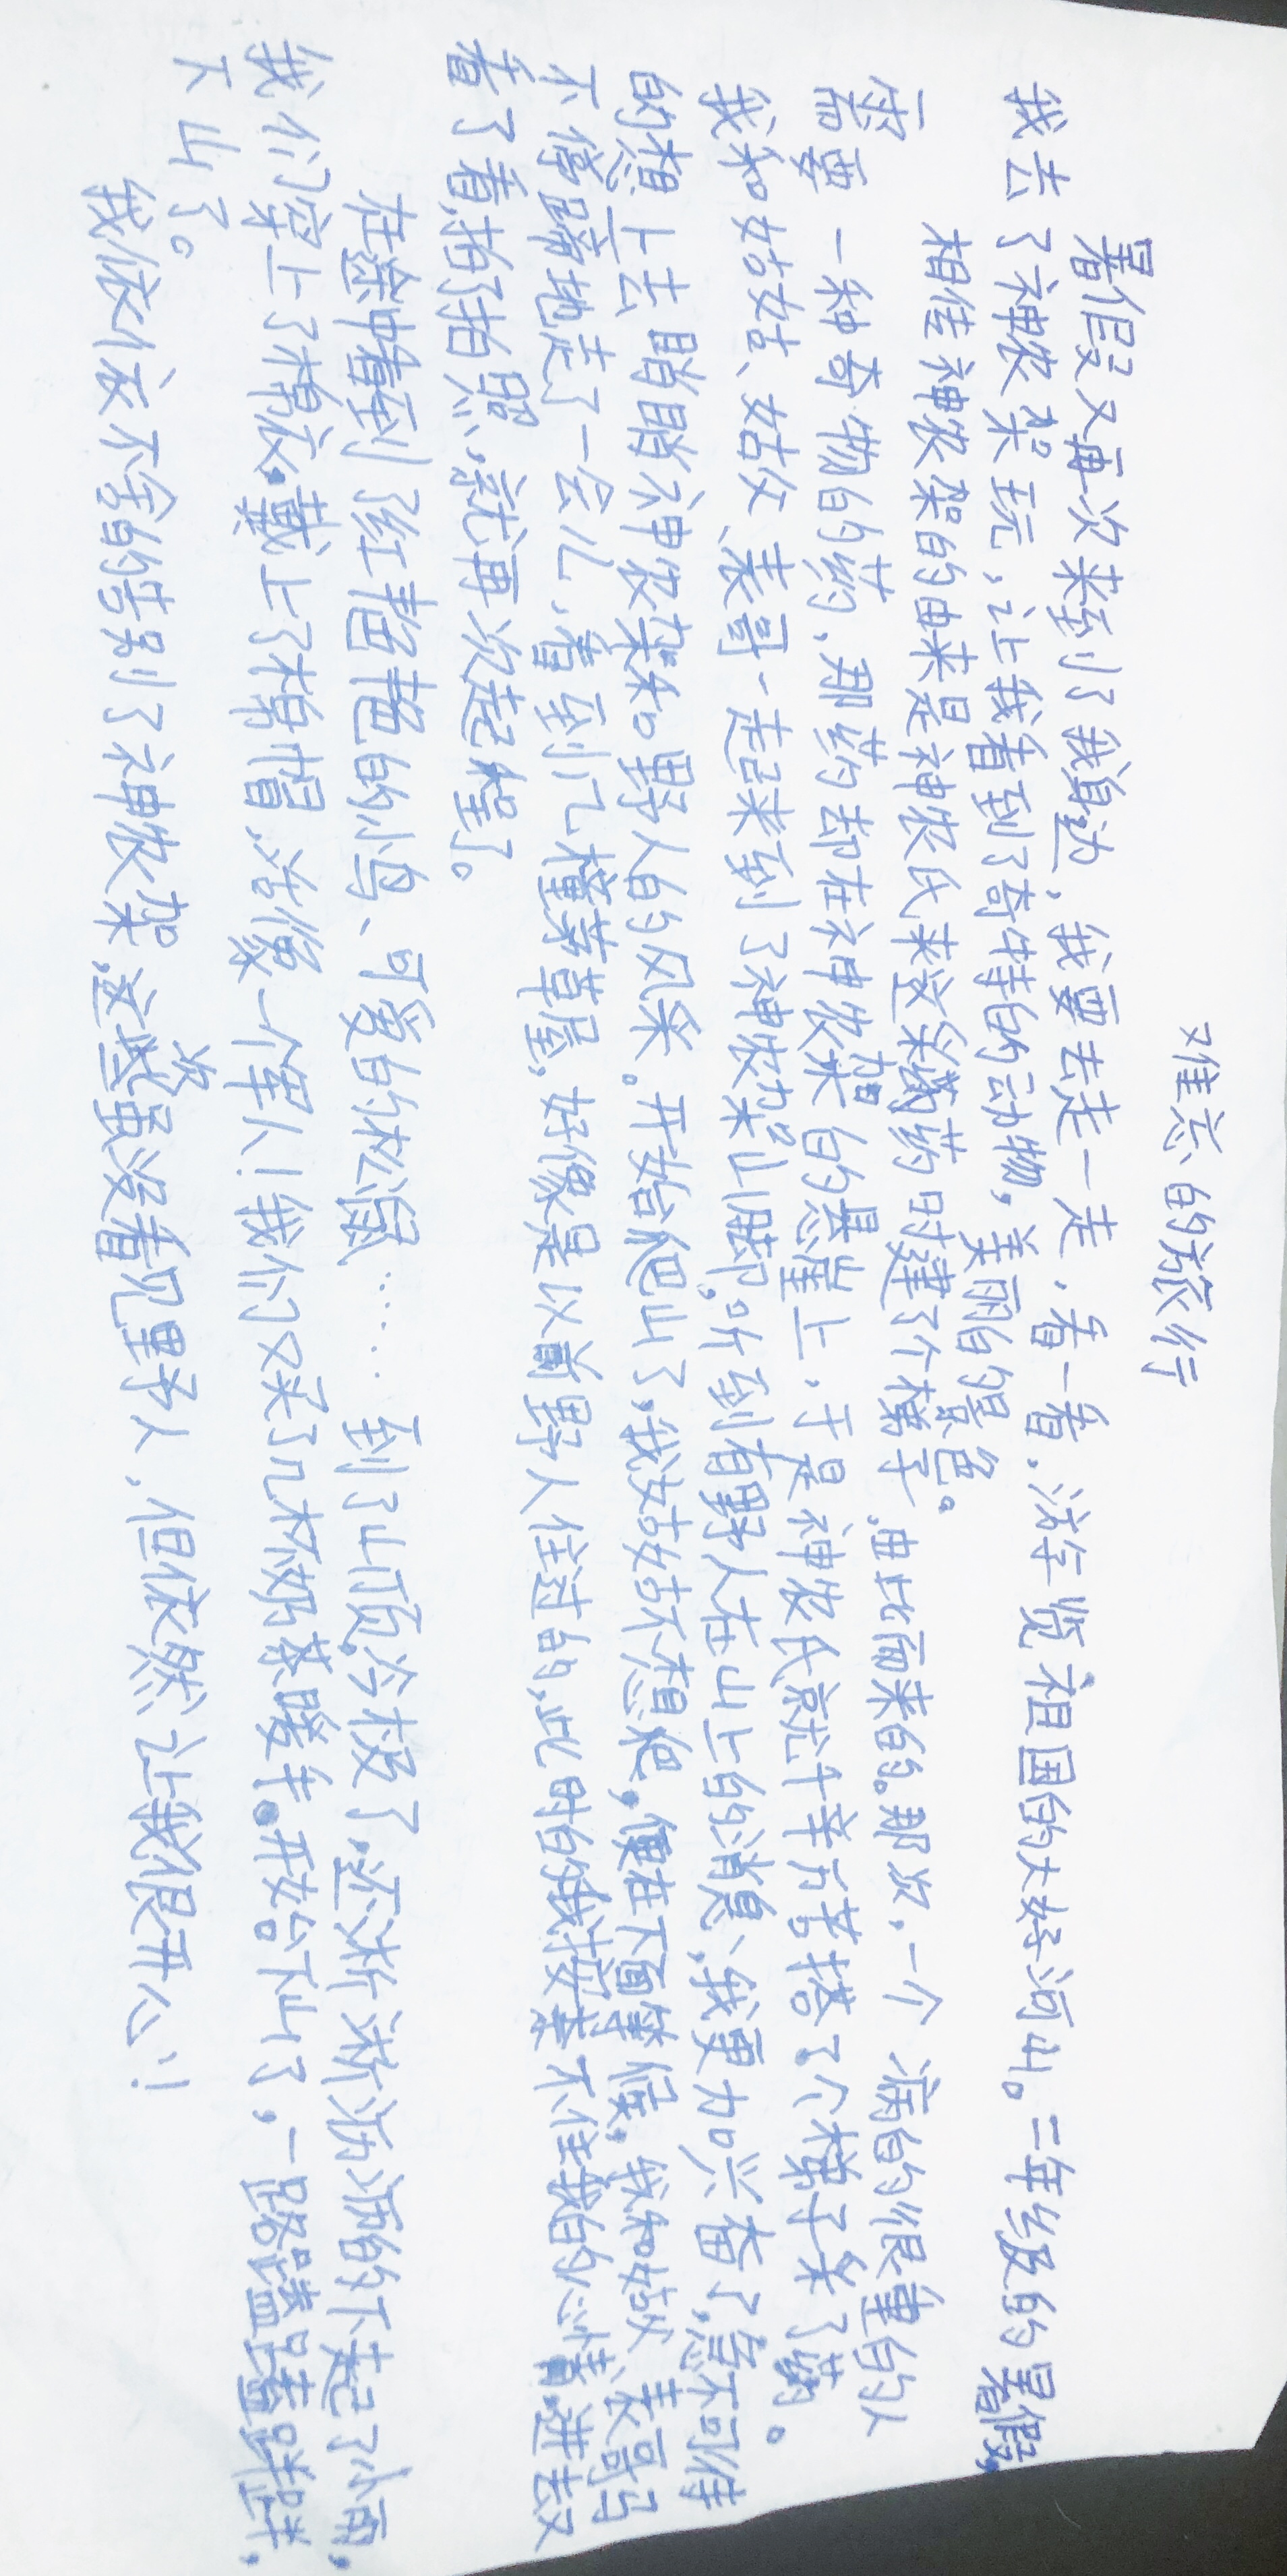 难忘的旅行
暑假又再次来到了我身边，我要去走一走，看一看，游览祖国的大好河山。二年级的暑假，
我去了神农架玩，让我看到了奇特的动物，美丽的景色。
相传神农架的由来是神农氏来这采药时建了个梯子，由此而来的。那次，一个病的很重的人
需要一种奇物的药，那药却在神农架的悬崖上，于是神农氏就千辛万苦搭了个梯子采了药。
我和姑姑、姑父、表哥一起来到了神农架山脚，听到有野人在山上的消息，我更加兴奋了，急不可待
的想上去瞧瞧神农架和野人的风采。开始爬山了，我姑姑不想爬，便在下面等候，我和姑父、表哥马
不停蹄地走了一会儿，看到几幢茅草屋，好像是以前野人住过的，此时的我按捺不住我的心情，进去又
看了看，拍了拍照，就再次起程了。
在途中看到了红艳艳的小鸟、可爱的松鼠……到了山顶，冷极了，还淅淅沥沥的下起了小雨，
我们穿上了棉衣，戴上了棉帽，活像一个军人！我们又买了几杯奶茶暖手。开始下山了，一路磕磕绊绊，
下山了。
我依依不舍的告别了神农架，这次虽没看见野人，但依然让我很开心！